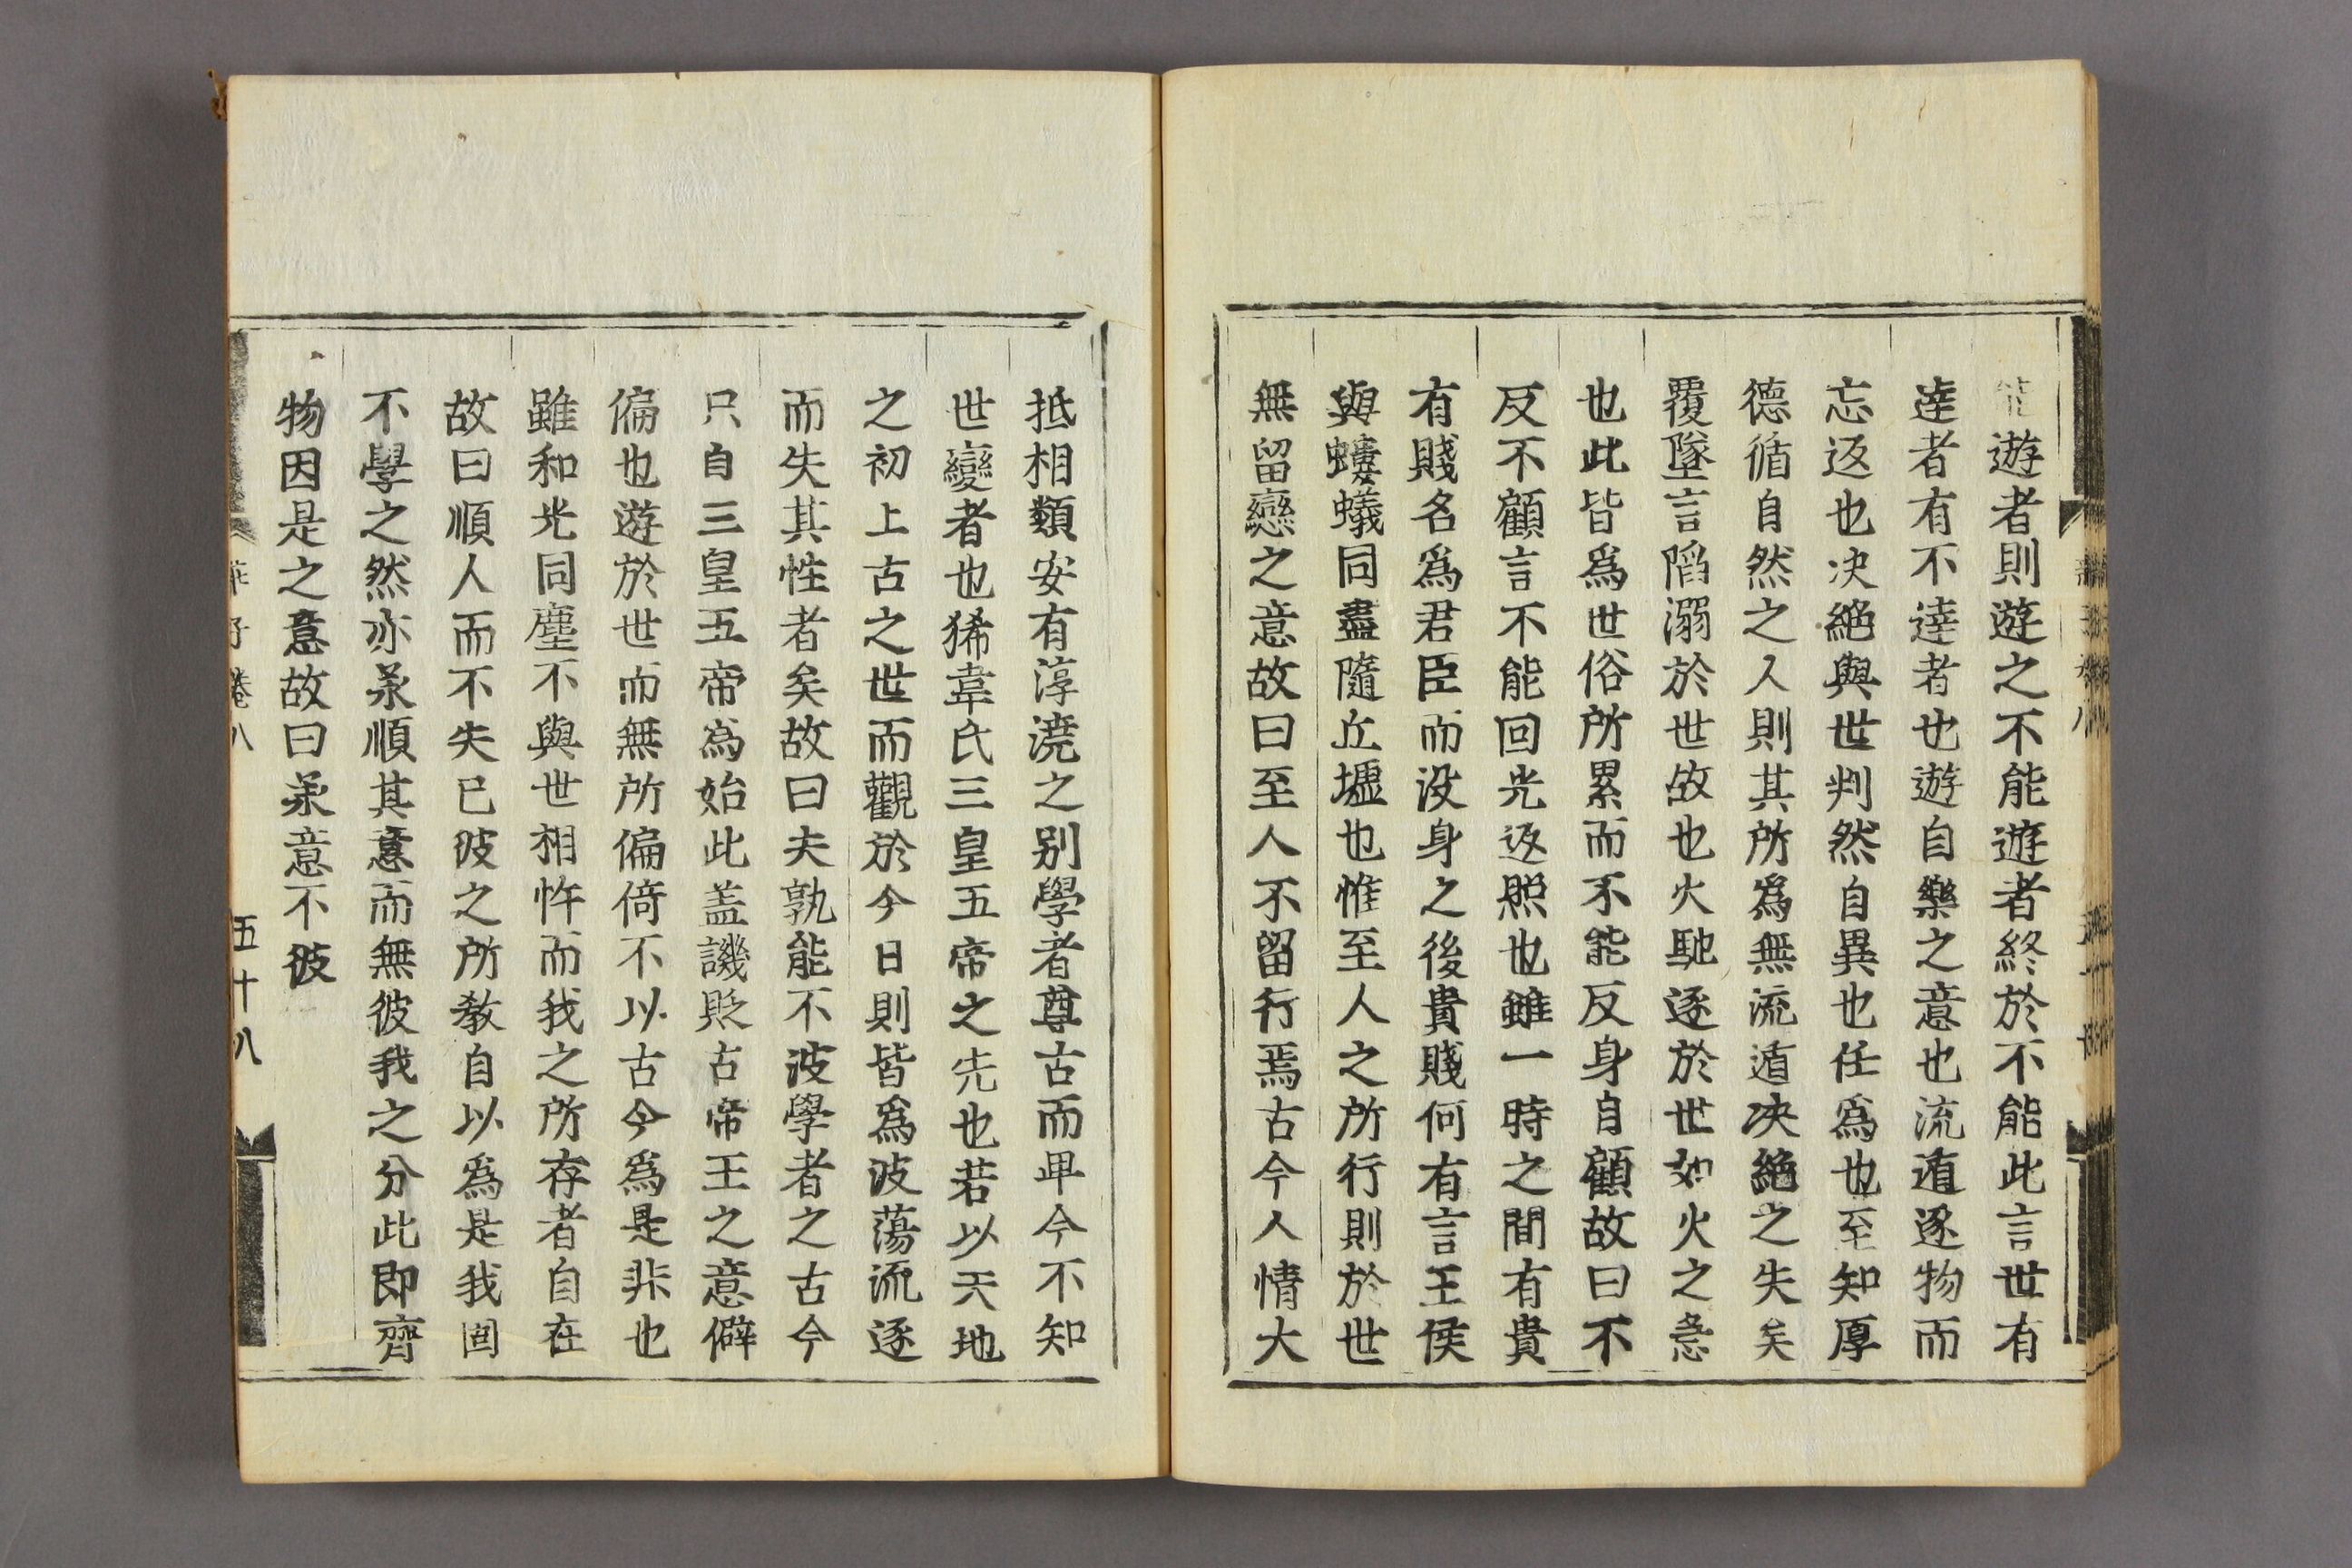 能遊者則遊之不能遊者終於不能此言世有
達者有不達者也遊自樂之意也流遁逐物而
忘返也决絶與世判然自異也任爲也至知厚
德循自然之人則其所爲無流遁决絶之失矣
覆墜言陷溺於世故也火馳逐於世如火之急
也此皆爲世俗所累而不能反身自顧故曰不
反不顧言不能回光返照也雖一時之間有貴
有賤名爲君臣而没身之後貴賤何有言王侯
與螻蟻同盡隨丘墟也惟至人之所行則於世
無留戀之意故曰至人不留行焉古今人情大
抵相類安有淳澆之别學者尊古而卑今不知
世變者也狶韋氏三皇五帝之先也若以天地
之初上古之世而觀於今日則皆爲波蕩流逐
而失其性者矣故曰夫孰能不波學者之古今
只自三皇五帝為始此盖譏貶古帝王之意僻
偏也遊於世而無所偏倚不以古今爲是非也
雖和光同塵不與世相忤而我之所存者自在
故曰順人而不失已彼之所教自以爲是我固
不學之然亦承順其意而無彼我之分此即齊
物因是之意故曰承意不彼
莊子卷八 五十八